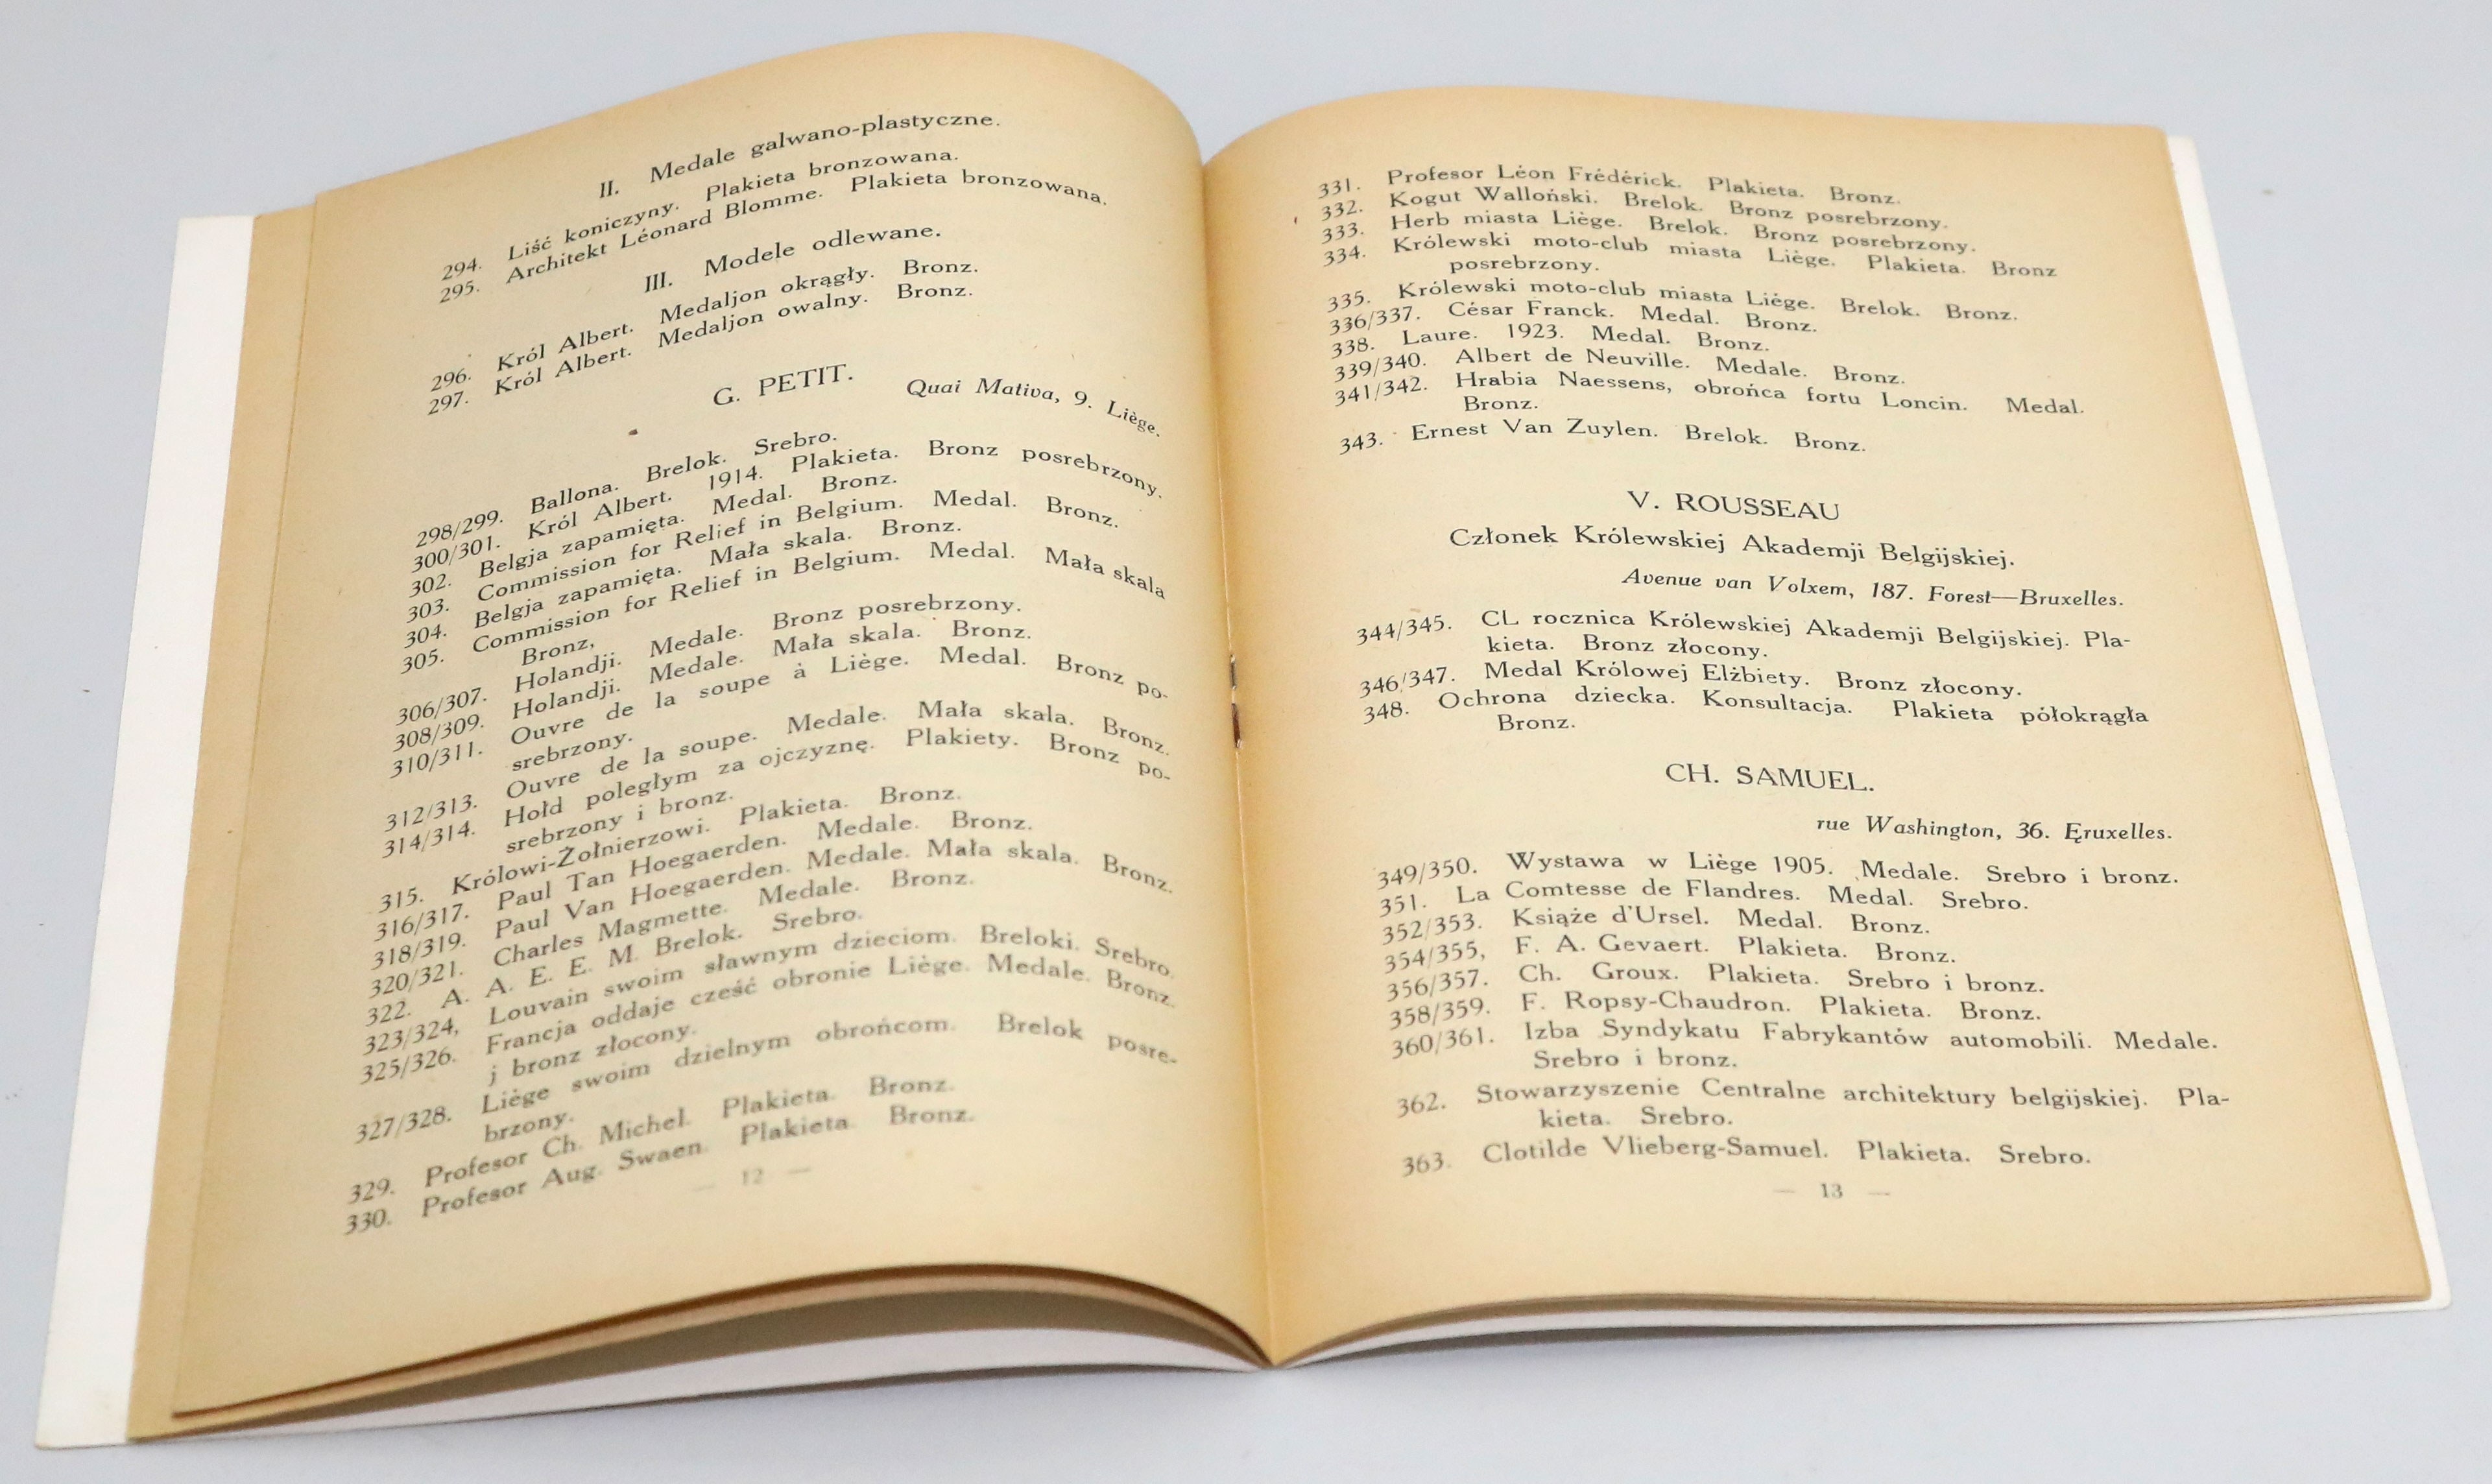 II. Medale galwano-plastyczne.
294. Liść koniczyny. Plakieta bronzowana.
295. Architekt Léonard Blomme. Plakieta bronzowana.
III. Modele odlewane.
296. Król Albert. Medaljon okrągły. Bronz.
297. Król Albert. Medaljon owalny. Bronz.
G. PETIT.
Quai Mativa, 9. Liège.
298/299. Ballona. Brelok. Srebro.
300/301. Król Albert. 1914. Plakieta. Bronz posrebrzony.
302. Belgja zapamięta. Medal. Bronz.
303. Commission for Relief in Belgium. Medal. Bronz.
304. Belgja zapamięta. Mała skala. Bronz.
305. Commission for Relief in Belgium. Medal. Mała skala
Bronz,
306/307. Holandji. Medale. Bronz posrebrzony.
308/309. Holandji. Medale. Mała skala. Bronz.
310/311. Ouvre de la soupe à Liège. Medal. Bronz po-
srebrzony.
312/313. Ouvre de la soupe. Medale. Mała skala. Bronz.
314/314. Hołd poległym za ojczyznę. Plakiety. Bronz po-
srebrzony i bronz.
315. Królowi-Żołnierzowi. Plakieta. Bronz.
316/317. Paul Tan Hoegaerden. Medale. Bronz.
318/319. Paul Van Hoegaerden. Medale. Mała skala. Bronz.
320/321. Charles Magmette. Medale. Bronz.
322. A. A. E. E. M. Brelok. Srebro.
323/324, Louvain swoim sławnym dzieciom. Breloki. Srebro.
325/326. Francja oddaje cześć obronie Liège. Medale. Bronz.
j bronz złocony.
327/328. Liège swoim dzielnym obrońcom. Brelok posre-
brzony.
329. Profesor Ch. Michel. Plakieta. Bronz.
330. Profesor Aug. Swaen. Plakieta. Bronz.
— 12 —
331. Profesor Léon Frédérick. Plakieta. Bronz.
332. Kogut Walloński. Brelok. Bronz posrebrzony.
333. Herb miasta Liège. Brelok. Bronz posrebrzony.
334. Królewski moto-club miasta Liège. Plakieta. Bronz
posrebrzony.
335. Królewski moto-club miasta Liège. Brelok. Bronz.
336/337. César Franck. Medal. Bronz.
338. Laure. 1923. Medal. Bronz.
339/340. Albert de Neuville. Medale. Bronz.
341/342. Hrabia Naessens, obrońca fortu Loncin. Medal.
Bronz.
343. Ernest Van Zuylen. Brelok. Bronz.
V. ROUSSEAU
Członek Królewskiej Akademji Belgijskiej.
Avenue van Volxem, 187. Forest—Bruxelles.
344/345. CL rocznica Królewskiej Akademji Belgijskiej. Pla-
kieta. Bronz złocony.
346/347. Medal Królowej Elżbiety. Bronz złocony.
348. Ochrona dziecka. Konsultacja. Plakieta półokrągła
Bronz.
CH. SAMUEL.
rue Washington, 36. Eruxelles.
349/350. Wystawa w Liège 1905. Medale. Srebro i bronz.
351. La Comtesse de Flandres. Medal. Srebro.
352/353. Książe d'Ursel. Medal. Bronz.
354/355, F. A. Gevaert. Plakieta. Bronz.
356/357. Ch. Groux. Plakieta. Srebro i bronz.
358/359. F. Ropsy-Chaudron. Plakieta. Bronz.
360/361. Izba Syndykatu Fabrykantów automobili. Medale.
Srebro i bronz.
362. Stowarzyszenie Centralne architektury belgijskiej. Pla-
kieta. Srebro.
363. Clotilde Vlieberg-Samuel. Plakieta. Srebro.
— 13 —